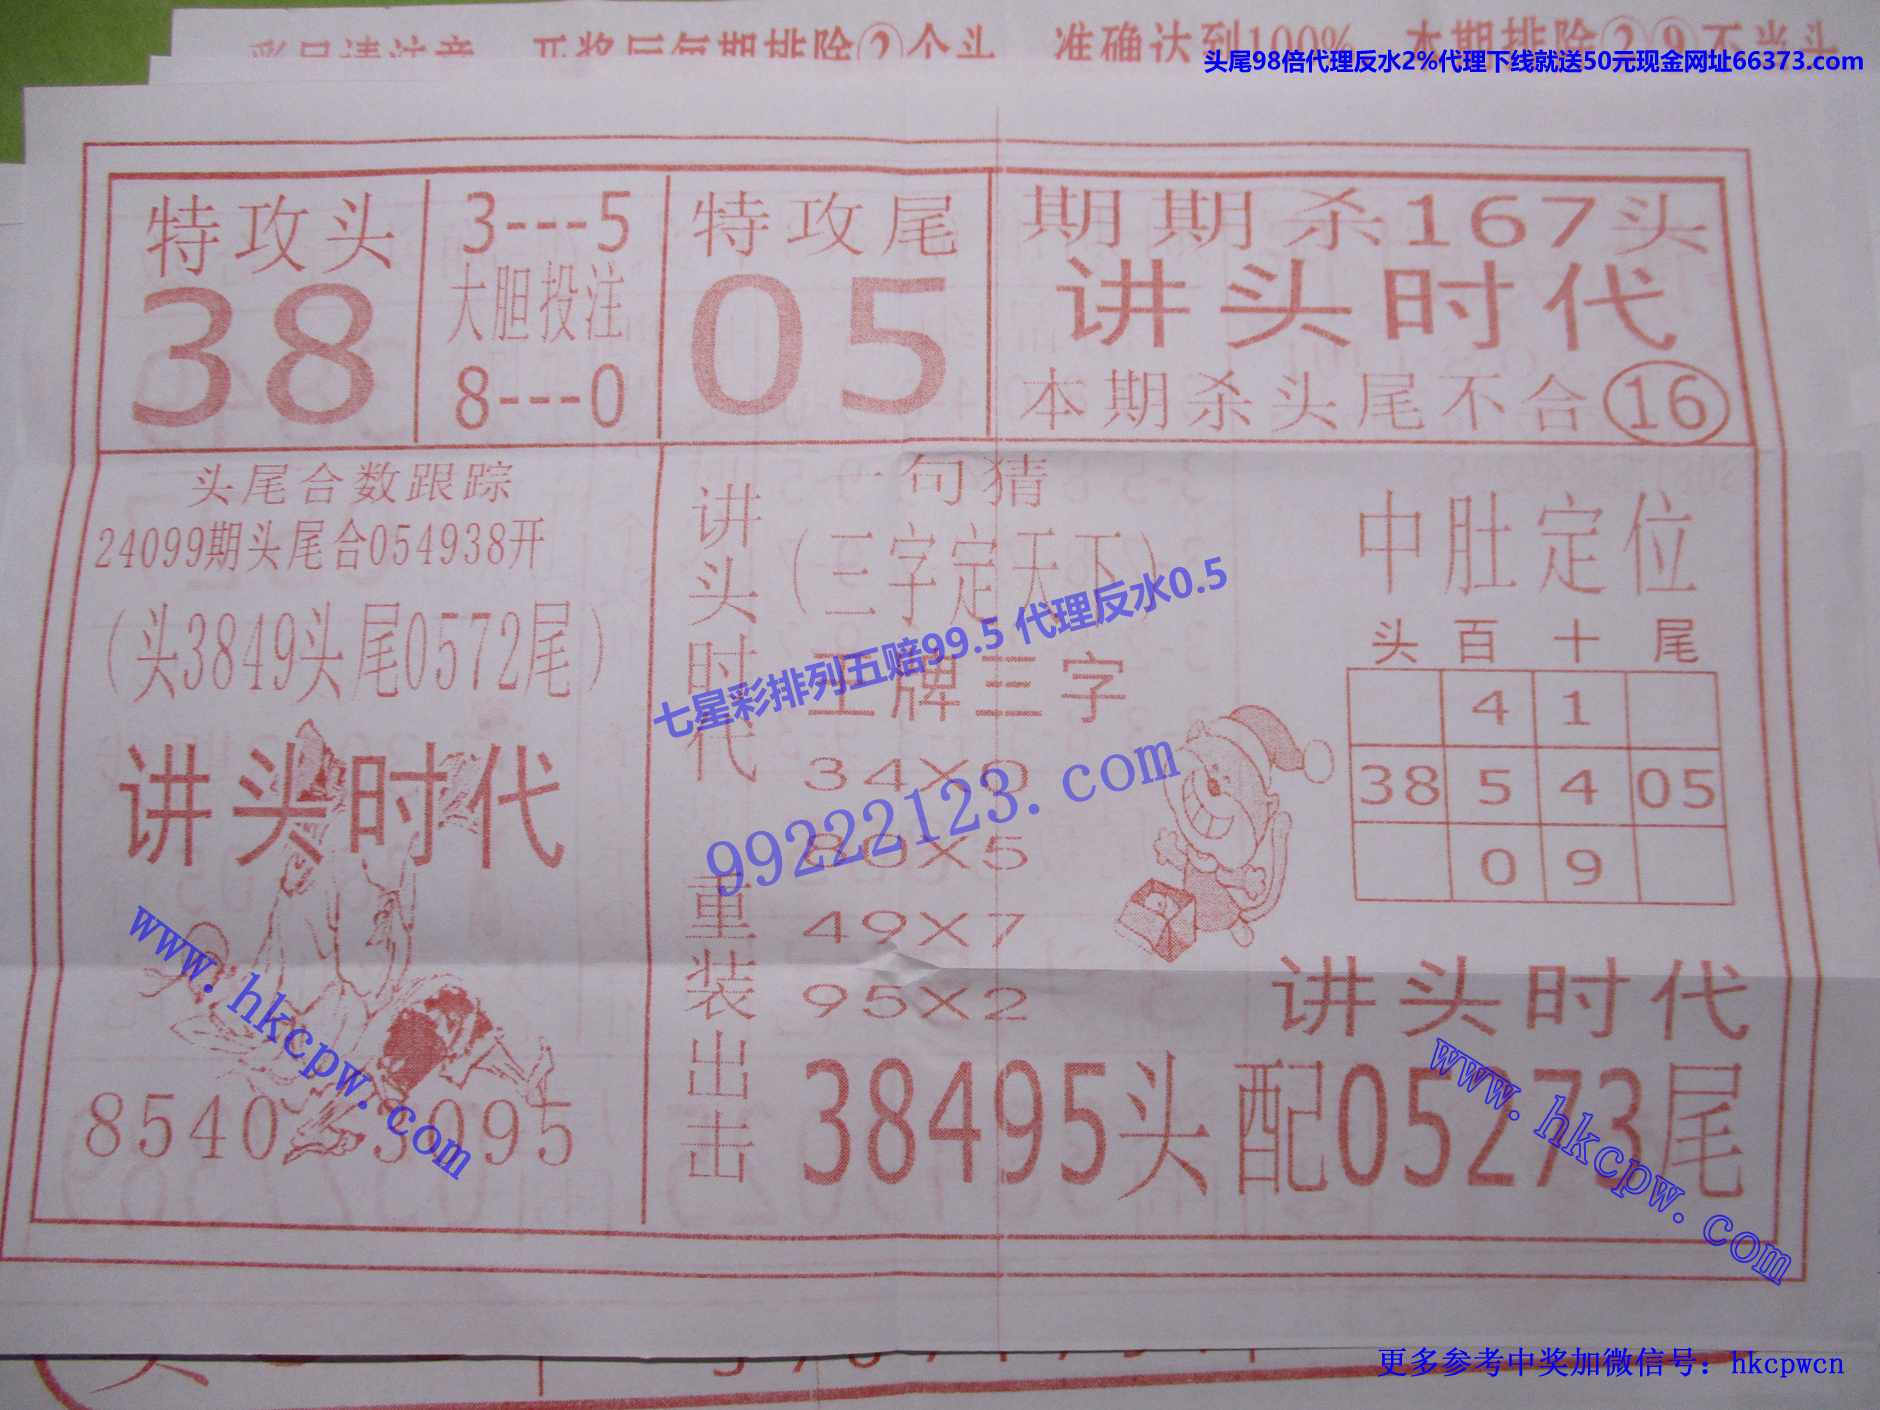 准确达到100%
头尾98倍代理反水2%代理下线就送50元现金网址66373.com
特攻头
38
3---5
大胆投注
8---0
特攻尾
05
期期杀167头
讲头时代
本期杀头尾不合16
头尾合数跟踪
24099期头尾合054938开
(头3849头尾0572尾)
讲头时代
8540
讲头时代
重装出击
一句猜
(三字定天下)
王牌三字
34X0
80X5
49X7
95X2
38495头配05273尾
中肚定位
头 百 十 尾
4 1
38 5 4 05
0 9
讲头时代
七星彩排列五赔99.5 代理反水0.5
99222123.com
www.hkcpw.com
www.hkcpw.com
更多参考中奖加微信号：hkcpwcn